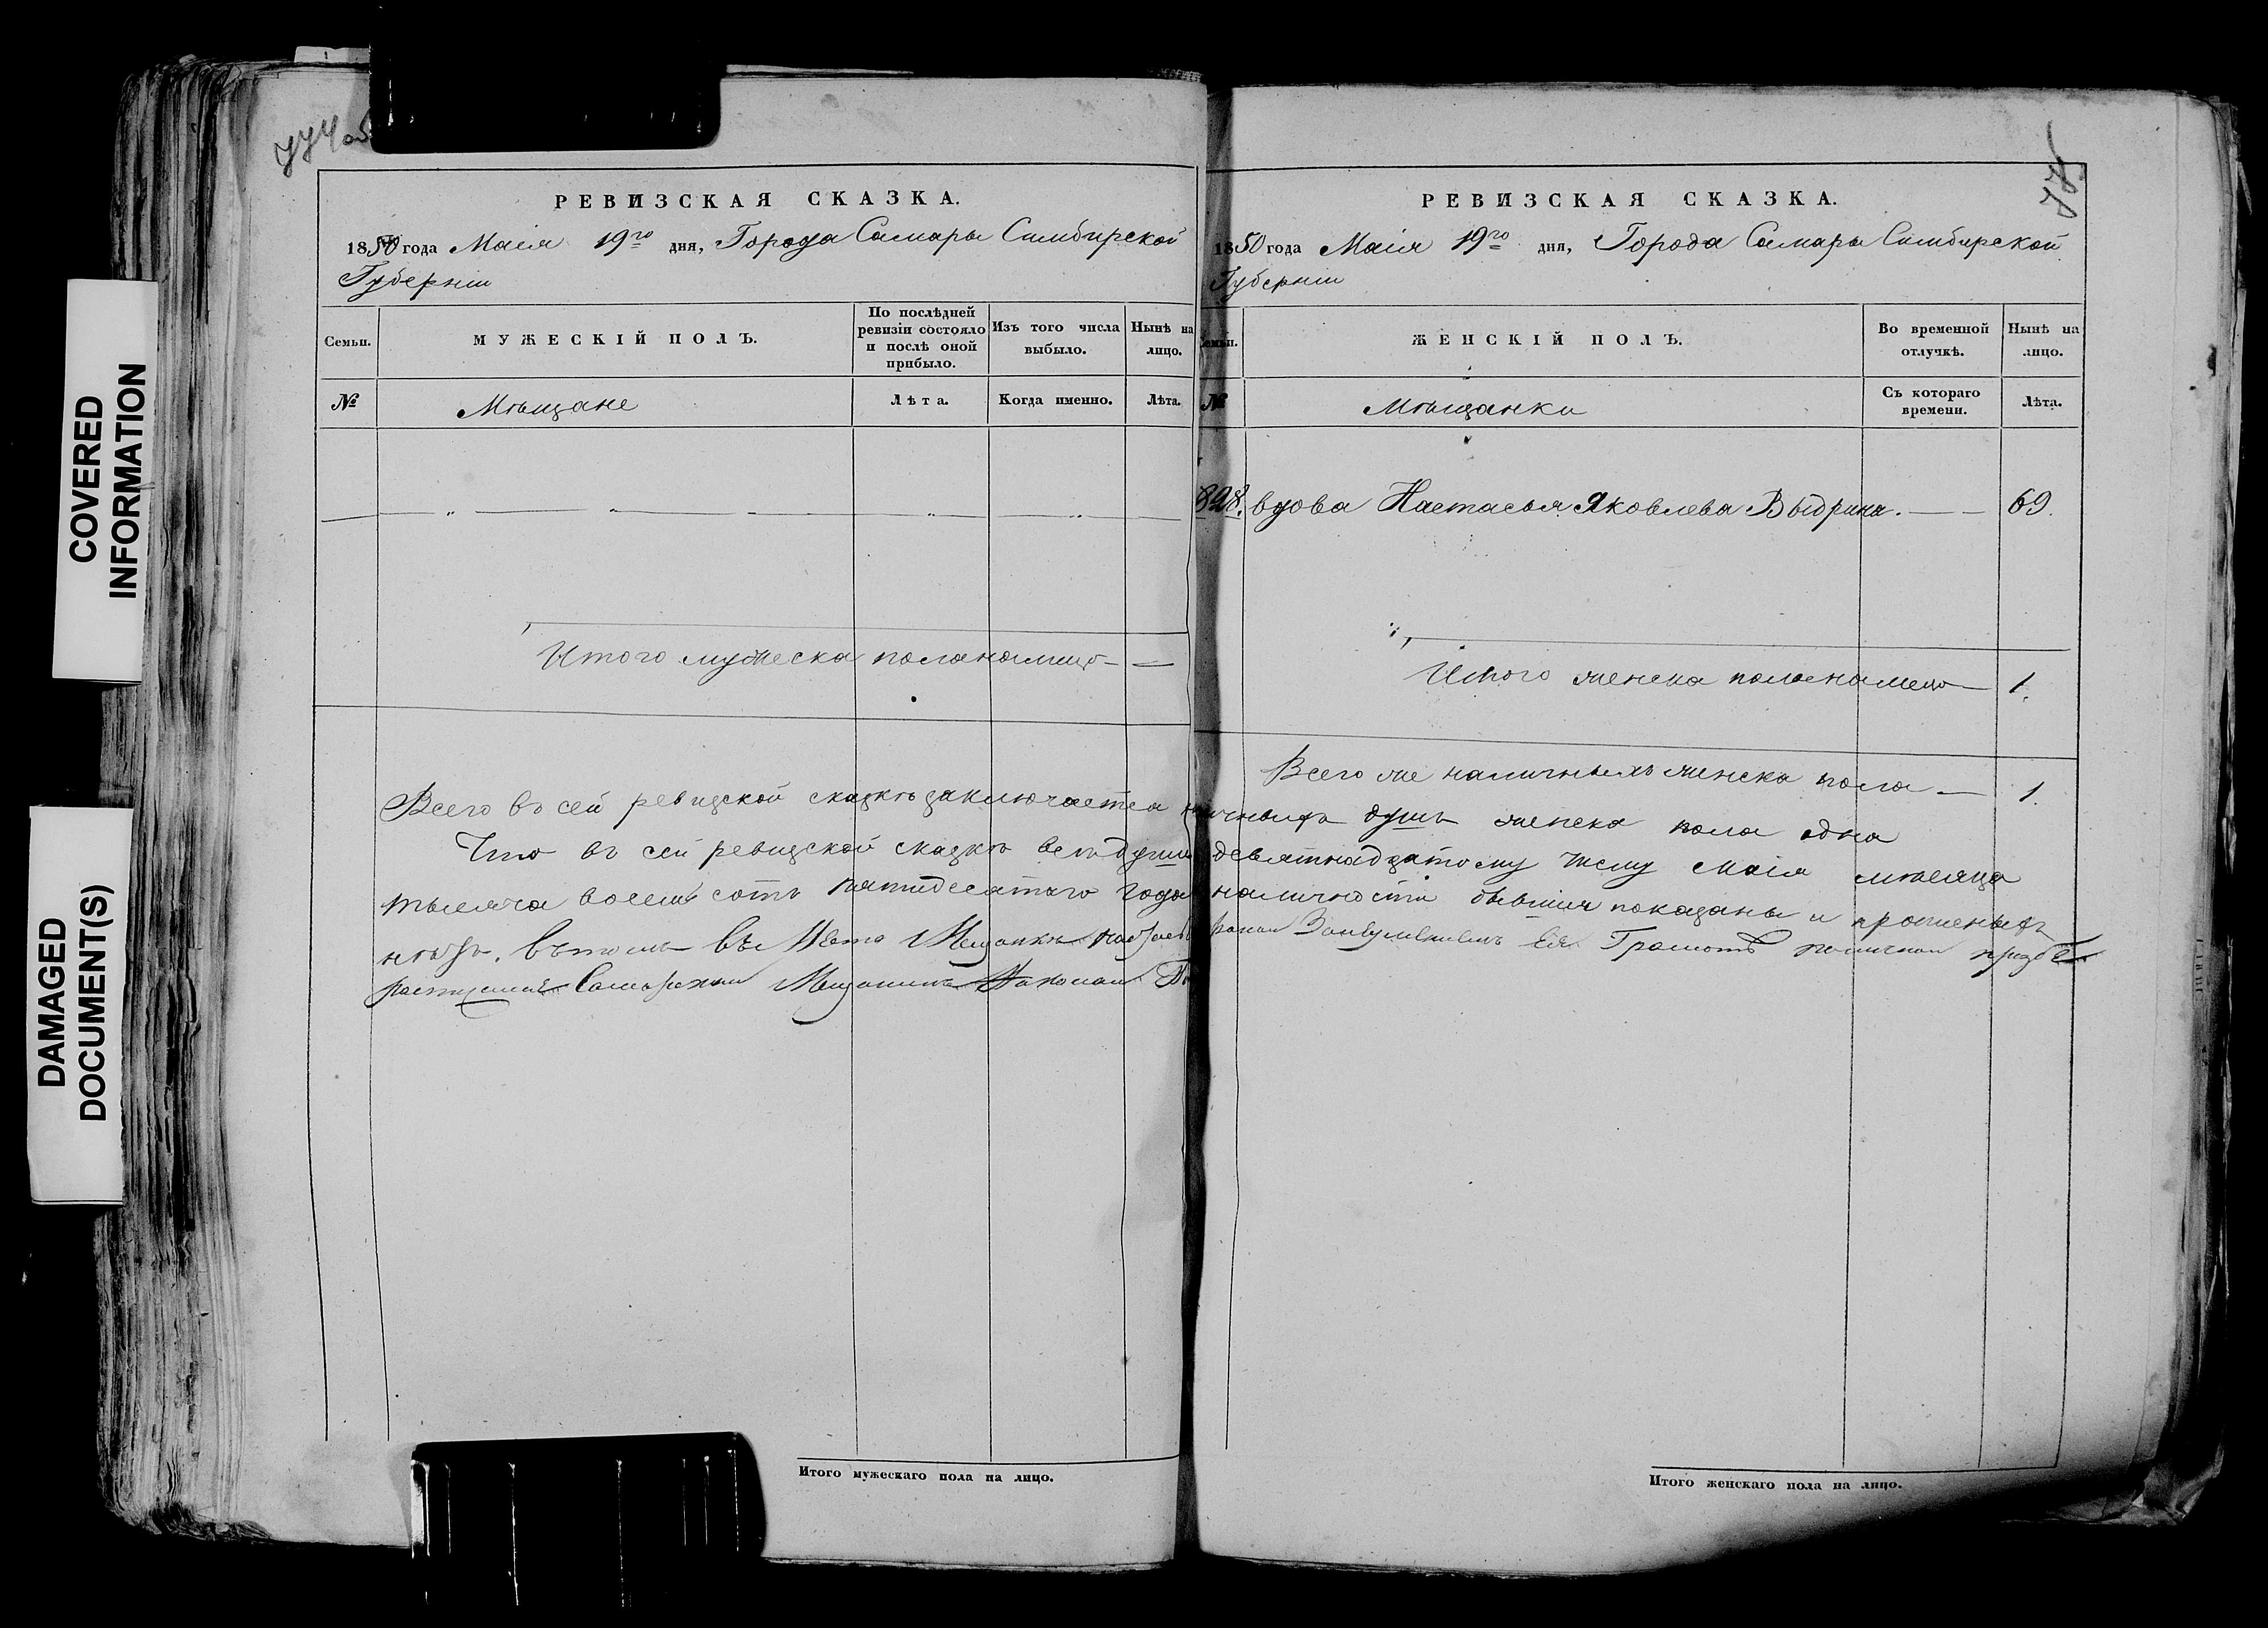 COVERED
INFORMATION
DAMAGED
DOCUMENT(S)
774 об
РЕВИЗСКАЯ СКАЗКА.
1850 года Маія 19го дня, Города Самары Симбирской
Губерніи
Семьи.
МУЖЕСКІЙ ПОЛЪ.
По послѣдней ревизіи состояло и послѣ оной прибыло.
Изъ того числа выбыло.
Нынѣ на лицо.
№
Мѣщане
Лѣта.
Когда именно.
Лѣта.
Итого мужеска пола налицо —
775
РЕВИЗСКАЯ СКАЗКА.
1850 года Маія 19го дня, Города Самары Симбирской
Губерніи
Семьи.
ЖЕНСКІЙ ПОЛЪ.
Во временной отлучкѣ.
Нынѣ на лицо.
№
Мѣщанки
Съ котораго времени.
Лѣта.
828. вдова Настасья Яковлева Выдрина. — 69.
Итого женска пола налицо — 1.
Всего же наличныхъ женска пола — 1.
Всего въ сей ревизской сказкѣ заключается наличныхъ душъ женска пола одна
Что въ сей ревизской сказкѣ все девятнадцатому числу Маія мѣсяца
тысяча восемь сотъ пятидесятаго года наличности бывшія показаны и
въ томъ въ Мѣсто Мещанки Грамотѣ
Самарскій Мещанинъ
Итого мужескаго пола на лицо.
Итого женскаго пола на лицо.